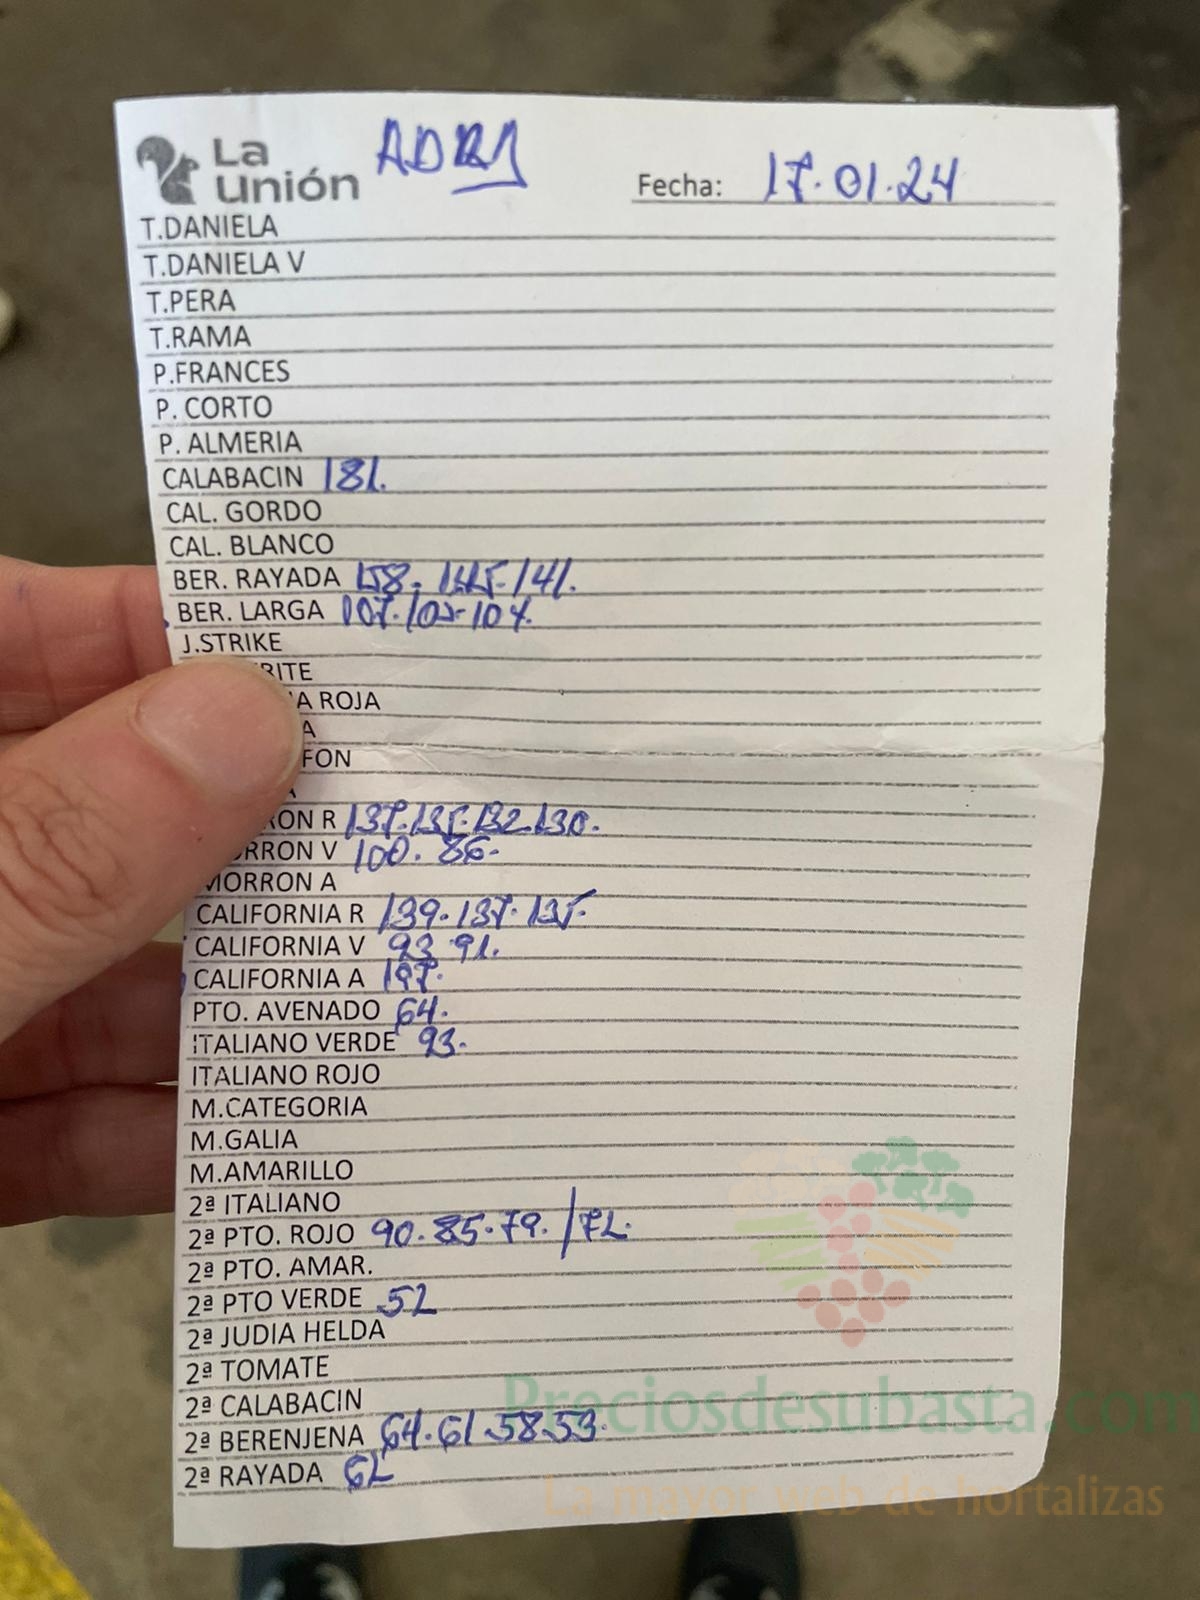 La unión ADRA Fecha: 17.01.24
T.DANIELA
T.DANIELA V
T.PERA
T.RAMA
P.FRANCES
P. CORTO
P. ALMERIA
CALABACIN 181.
CAL. GORDO
CAL. BLANCO
BER. RAYADA 158. 145. 141.
BER. LARGA 107. 105. 104.
J.STRIKE
RITE
A ROJA
A
FON
A
RON R 137. 135. 132. 130.
RRON V 100. 86.
MORRON A
CALIFORNIA R 139. 137. 135.
CALIFORNIA V 93 91.
CALIFORNIA A 197.
PTO. AVENADO 64.
ITALIANO VERDE 93.
ITALIANO ROJO
M.CATEGORIA
M.GALIA
M.AMARILLO
2ª ITALIANO
2ª PTO. ROJO 90. 85. 79. / 72.
2ª PTO. AMAR.
2ª PTO VERDE 52
2ª JUDIA HELDA
2ª TOMATE
2ª CALABACIN
2ª BERENJENA 64. 61 58 53.
2ª RAYADA 62
Preciosdesubasta.com
La mayor web de hortalizas